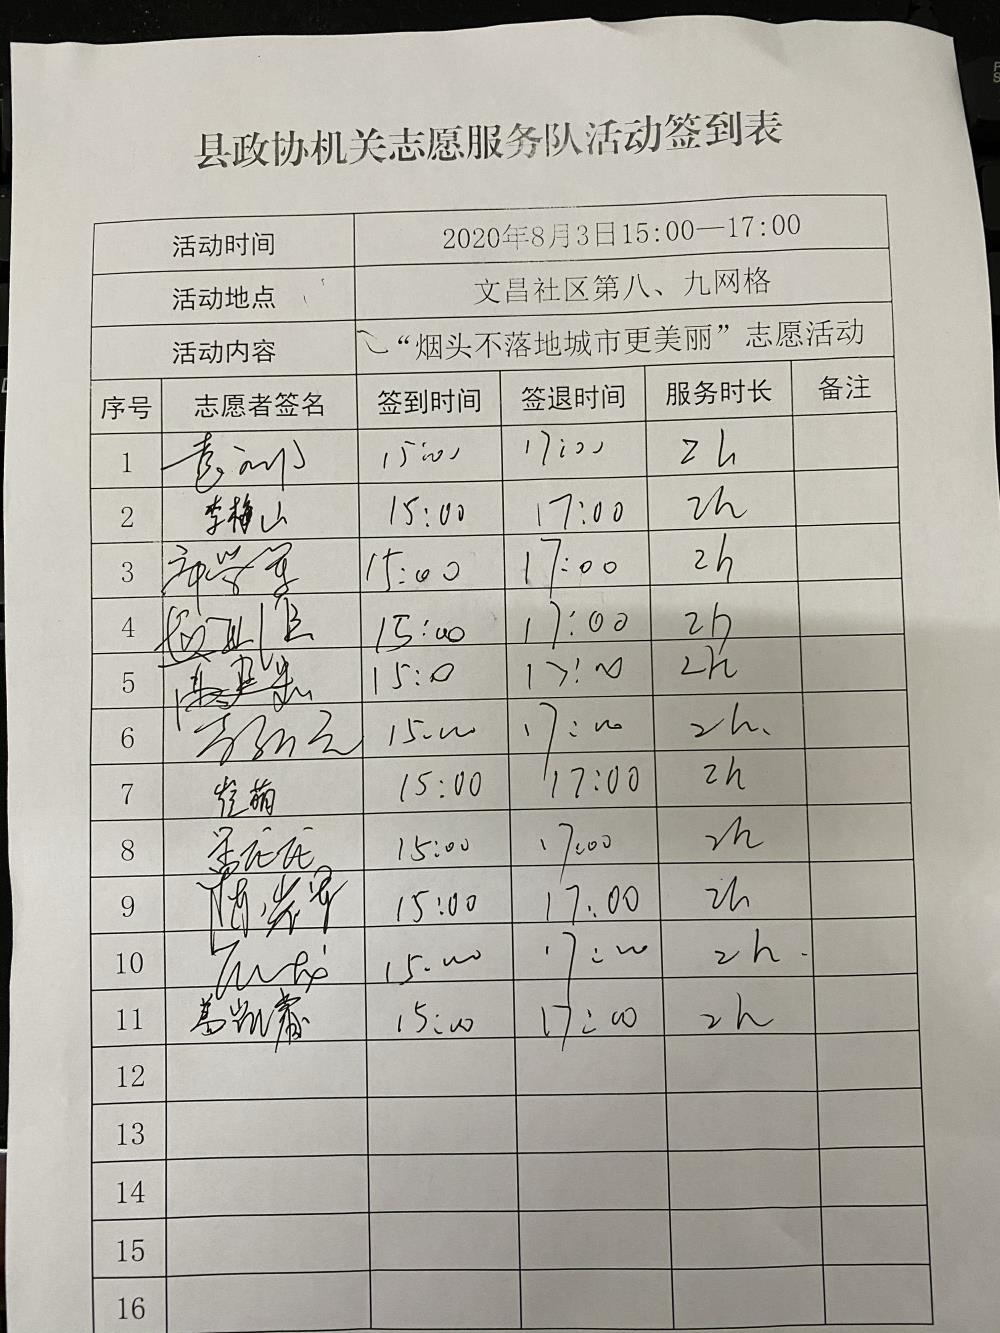 县政协机关志愿服务队活动签到表
活动时间 2020年8月3日15:00—17:00
活动地点 文昌社区第八、九网格
活动内容 “烟头不落地城市更美丽”志愿活动
序号 志愿者签名 签到时间 签退时间 服务时长 备注
1 15:00 17:00 2h
2 李梅山 15:00 17:00 2h
3 15:00 17:00 2h
4 15:00 17:00 2h
5 15:0 17:00 2h
6 15:00 17:00 2h.
7 15:00 17:00 2h
8 15:00 17:00 2h
9 15:00 17:00 2h
10 15:00 17:00 2h.
11 15:00 17:00 2h
12
13
14
15
16